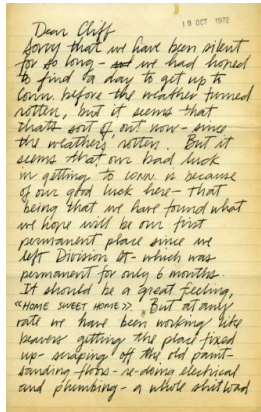 19 OCT 1972
Dear Cliff
Sorry that we have been silent
for so long - we had hoped
to find a day to get up to
Conn. before the weather turned
rotten, but it seems that
thats sort of out now - since
the weathers rotten. But it
seems that our bad luck
in getting to CONN. is because
of our good luck here - that
being that we have found what
we hope will be our first
permanent place since we
left Division St - which was
permanent for only 6 months.
It should be a great feeling,
«HOME SWEET HOME». But at any
rate we have been working like
beavers getting the place fixed
up - scraping off the old paint -
sanding floors - re-doing electrical
and plumbing - a whole shitload